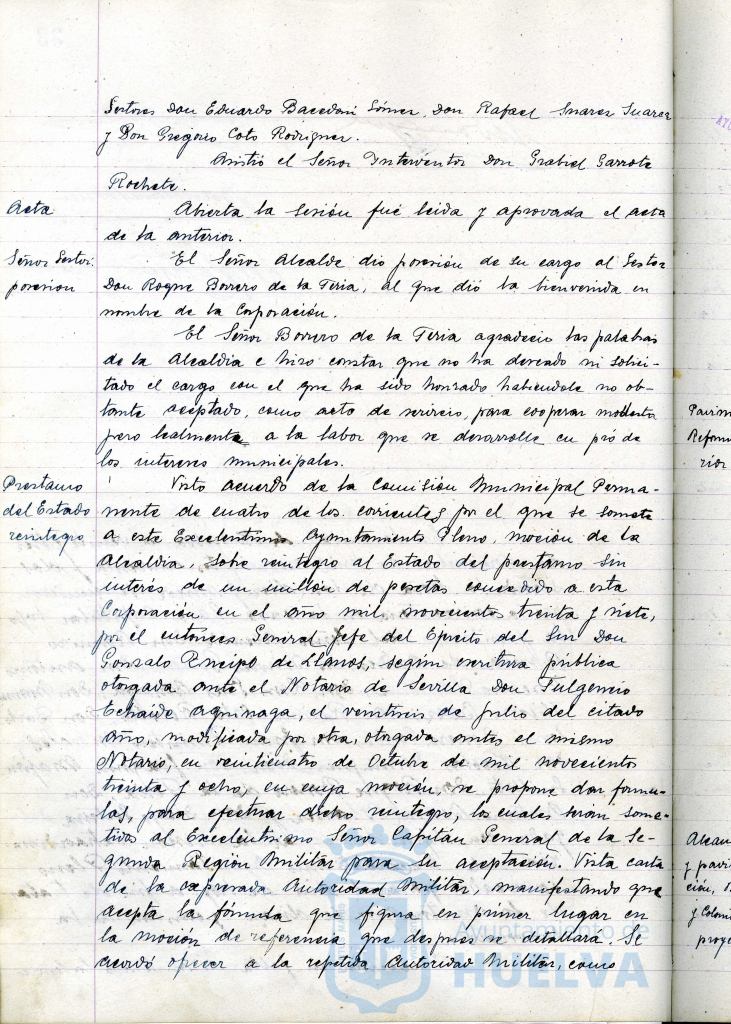 Señores Don Eduardo Bacedoni Gómez, Don Rafael Suarez Suarez
y Don Gregorio Coto Rodriguez.
Asistió el Señor Interventor Don Grabiel Garrote
Rochete.
Acta
Abierta la sesión fué leida y aprovada el acta
de la anterior.
Señor Gestor.
posesion
El Señor Alcalde dio posesión de su cargo al Gestor
Don Roque Borrero de la Feria, al que dió la bienvenida en
nombre de la Corporación.
El Señor Borrero de la Feria agradecio las palabras
de la Alcaldia e hizo constar que no ha deseado ni solici-
tado el cargo con el que ha sido honrado habiendole no obs-
tante aceptado, como acto de servicio, para cooperar modesta
pero lealmente a la labor que se desarrolle en pró de
los intereses municipales.
Prestamo
del Estado
reintegro
Visto acuerdo de la Comisión Municipal Perma-
nente de cuatro de los corrientes por el que se somete
a este Excelentisimo Ayuntamiento Pleno, moción de la
Alcaldia, sobre reintegro al Estado del prestamo sin
interés de un millón de pesetas concedido a esta
Corporación en el año mil novecientos treinta y siete,
por el entonces General Jefe del Ejército del Sur Don
Gonzalo Queipo de Llanos, según escritura pública
otorgada ante el Notario de Sevilla Don Fulgencio
Echaide Aguinaga, el veintiseis de Julio del citado
año, modificada por otra, otorgada antes el mismo
Notario, en veinticuatro de Octubre de mil novecientos
treinta y ocho, en cuya moción, se propone dos formu-
las, para efectuar dicho reintegro, las cuales seran some-
tidas al Excelentisimo Señor Capitán General de la Se-
gunda Región Militar para su aceptación. Vista carta
de la expresada Autoridad Militar, manifestando que
acepta la fórmula que figura en primer lugar en
la moción de referencia que despues se detallará. Se
acordó ofrecer a la repetida Autoridad Militar, como
Ayuntamiento de
HUELVA
Pavim
Reform
Alcan
y pavi
ción,
y Colom
proye